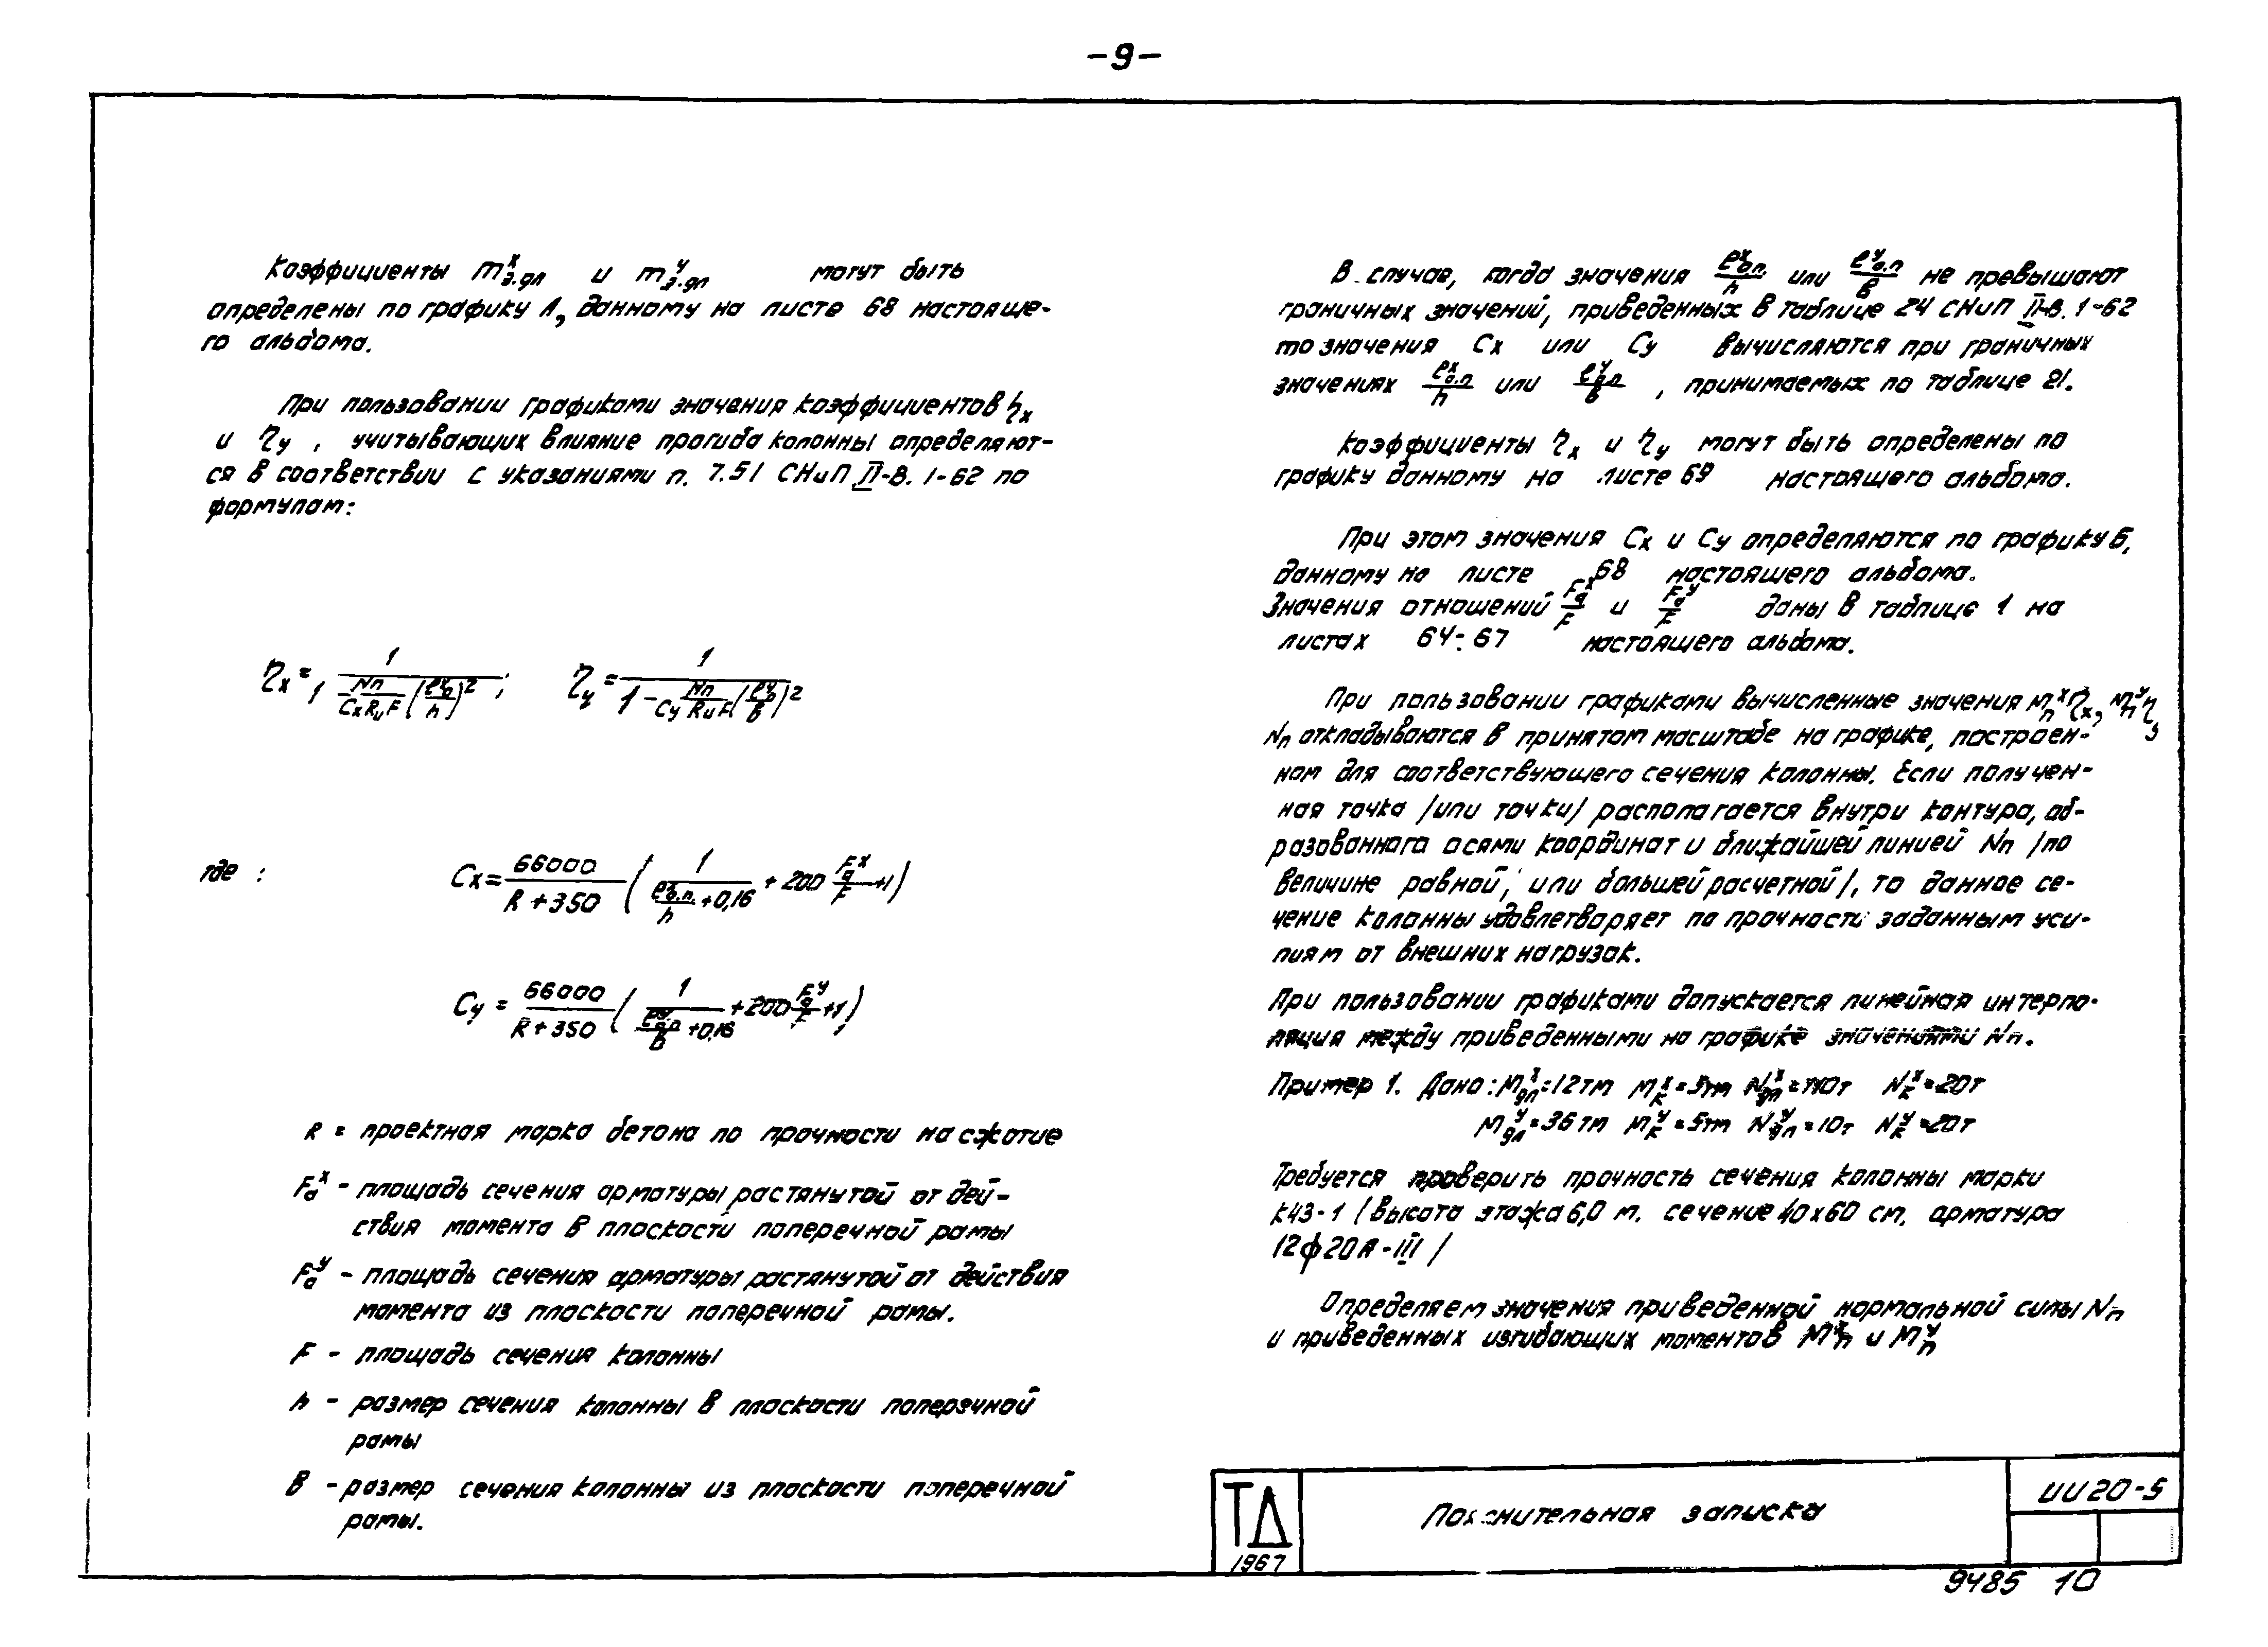 -9-
Коэффициенты m^x э.дл и m^y э.дл могут быть
определены по графику А, данному на листе 68 настояще-
го альбома.
При пользовании графиками значения коэффициентов ηx
и ηy, учитывающих влияние прогиба колонны определяют-
ся в соответствии с указаниями п. 7.51 СНиП II-В. 1-62 по
формулам:
ηx = 1 / (1 Nп/(Cx Rи F) (l^x o/h)^2); ηy = 1 / (1 - Nп/(Cy Rи F) (l^y o/в)^2)
где : Cx = 66000/(R + 350) (1/(e^x o.п./h + 0,16) + 200 Fa^x/F + 1)
Cy = 66000/(R + 350) (1/(e^y o.п/в + 0,16) + 200 Fa^y/F + 1)
R = проектная марка бетона по прочности на сжатие
Fa^x - площадь сечения арматуры растянутой от дей-
ствия момента в плоскости поперечной рамы
Fa^y - площадь сечения арматуры растянутой от действия
момента из плоскости поперечной рамы.
F - площадь сечения колонны
h - размер сечения колонны в плоскости поперечной
рамы
В - размер сечения колонны из плоскости поперечной
рамы.
В случае, когда значения e^x o.п/h или e^y o.п/в не превышают
граничных значений, приведенных в таблице 24 СНиП II-В. 1-62
то значения Cx или Cy вычисляются при граничных
значениях e^x o.п/h или e^y o.п/в, принимаемых по таблице 21.
Коэффициенты ηx и ηy могут быть определены по
графику данному на листе 69 настоящего альбома.
При этом значения Cx и Cy определяются по графику Б,
данному на листе 68 настоящего альбома.
Значения отношений Fa^x/F и Fa^y/F даны в таблице 1 на
листах 64÷67 настоящего альбома.
При пользовании графиками вычисленные значения Mп^x ηx, Mп^y η,
Nп откладываются в принятом масштабе на графике, построен-
ном для соответствующего сечения колонны. Если получен-
ная точка /или точки/ располагается внутри контура, об-
разованного осями координат и ближайшей линией Nп /по
величине равной, или большей расчетной/, то данное се-
чение колонны удовлетворяет по прочности заданным уси-
лиям от внешних нагрузок.
При пользовании графиками допускается линейная интерпо-
ляция между приведенными на графике значениями Nп.
Пример 1. Дано: M^x дл=12тм M^x к= тм N^x дл=110т N^x к=20т
M^y дл=36тм M^y к=5тм N^y дл=10т N^y к=20т
Требуется проверить прочность сечения колонны марки
К43-1 /высота этажа 6,0 м. сечение 40х60 см. арматура
12ф20А-III /
Определяем значения приведенной нормальной силы Nп
и приведенных изгибающих моментов M^x п и M^y п
ТД
1967
Пояснительная записка
ИИ20-5
9485 10